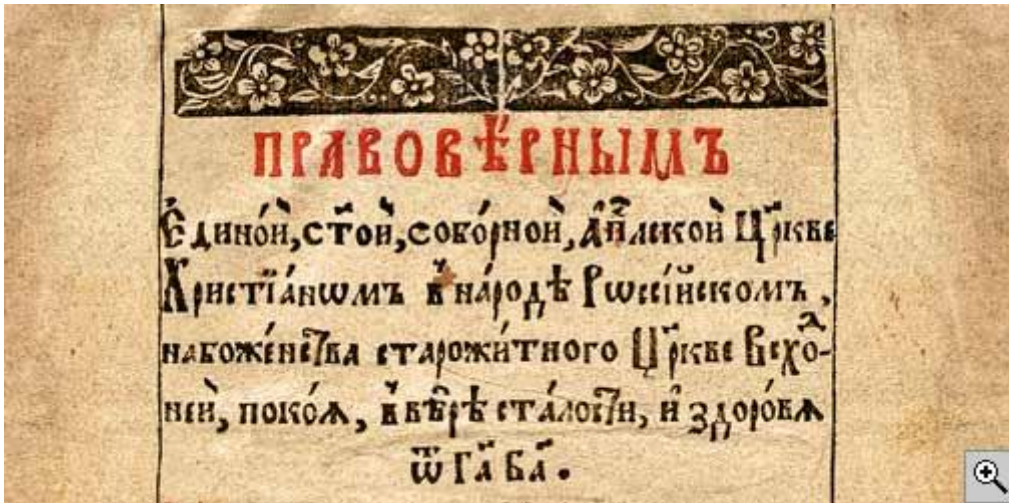 ПРАВОВѢ́РНЫМЪ
Єдино́й, ст҃ои, собо́рной, А҆пⷭ҇лскои Цр҃кве
Христїа́нѡмъ в҆ наро́дѣ Рѡссі́йскомъ,
набоже́нства старожи́тного Цр҃кве Всхо́д-
ней, поко́ѧ, в҆ вѣ́рѣ ста́лости, и҆ здоро́вѧ
ѿ Га҃ Ба҃.